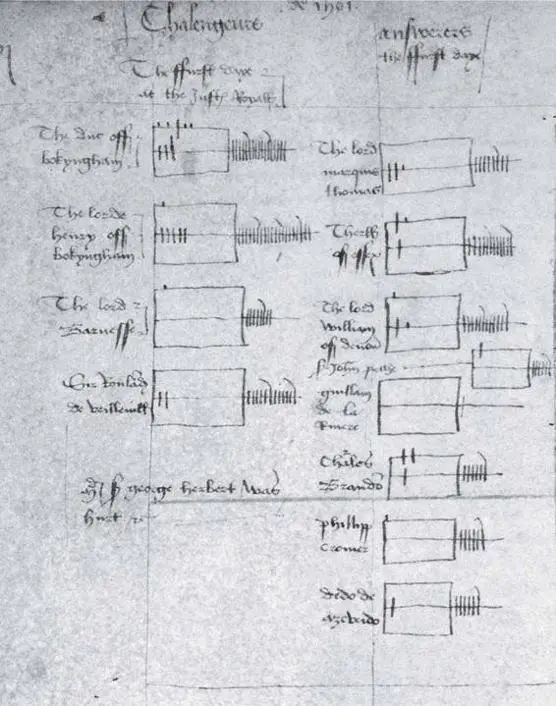 Chalengeurs
The ffurst daye
at the Justs Royall
The duc off
bokyngham
The lorde
henry off
bokyngham
The lord
Barnesse
Sir Roulād
de veilleuill
george herbert was
hurt
answerers
the ffurst daye
The lord
marquis
thomas
off essex
The lord
william
off
John
guillam
de la
Rivere
Charles
Brandō
phillipp
cromer
dedo de
azevedo